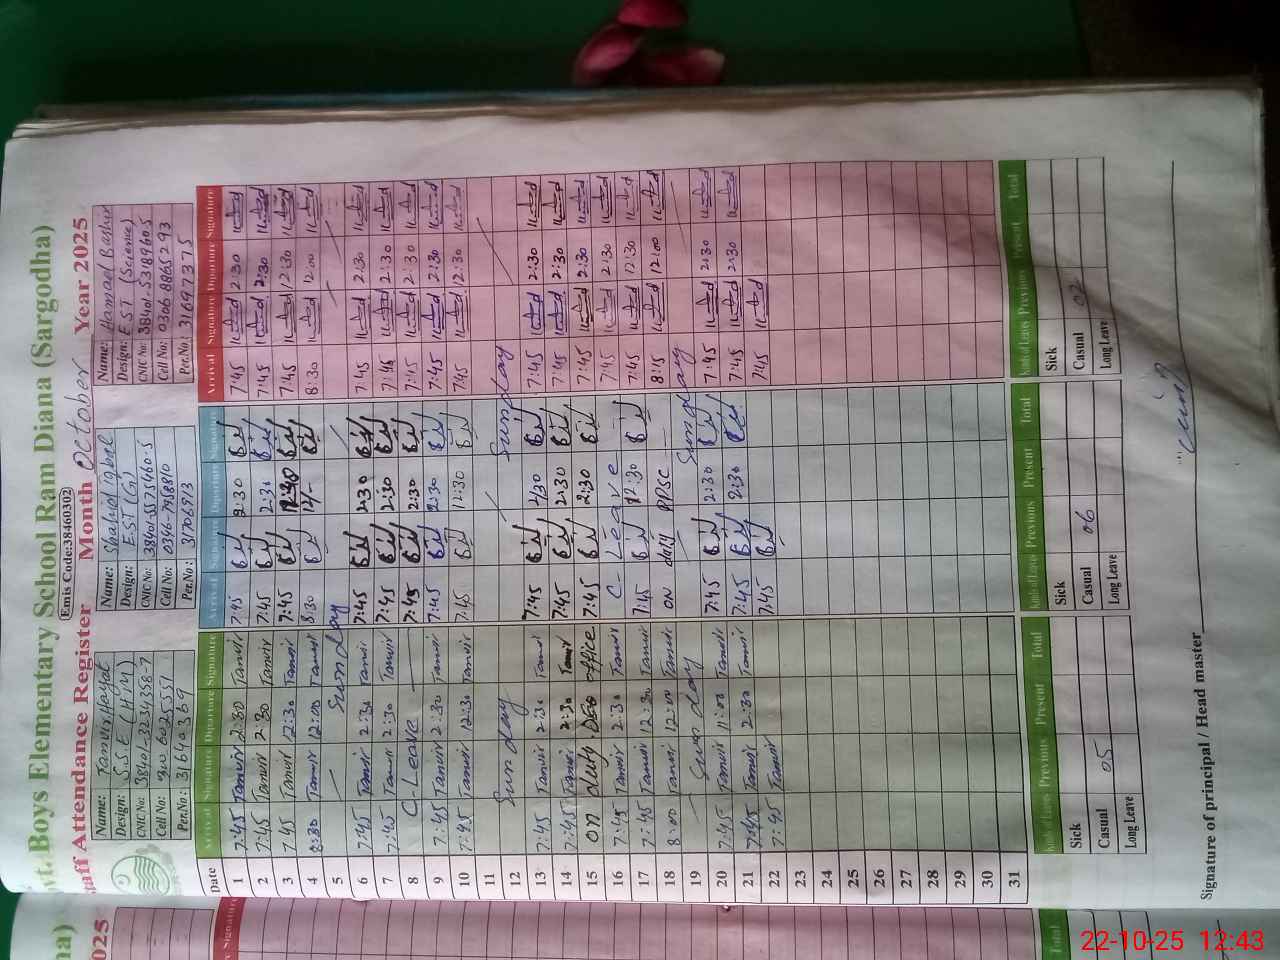 vt. Boys Elementary School Ram Diana (Sargodha)
Emis Code:38460302
taff Attendance Register Month October Year 2025
Name: Tanvir Hayat
Design: S.S.E (H/M)
CNIC No: 38401-3234358-7
Cell No:
Per.No: 3164369
Name: Shahid iqbal
Design: EST (G)
CNIC No: 38401-5575460-5
Cell No: 0346-7958810
Per.No: 31706913
Name: Hamad Bashir
Design: EST (Science)
CNIC No: 38401-5318960-5
Cell No: 0306 8865293
Per.No: 31697375
Date Arrival Signature Diparture Signature Arrival Signature Diparture Signature Arrival Signature Diparture Signature
1 7:45 Tanvir 2:30 Tanvir 7:45 2:30 7:45 2:30
2 7:45 Tanvir 2:30 Tanvir 7:45 2:30 7:45 2:30
3 7:45 Tanvir 12:30 Tanvir 7:45 12:30 7:45 12:30
4 8:30 Tanvir 12:00 Tanvir 8:30 12/- 8:30 12:00
5 Sunday
6 7:45 Tanvir 2:30 Tanvir 7:45 2:30 7:45 2:30
7 7:45 Tanvir 2:30 Tanvir 7:45 2:30 7:45 2:30
8 C-Leave 7:45 2:30 7:45 2:30
9 7:45 Tanvir 2:30 Tanvir 7:45 2:30 7:45 2:30
10 7:45 Tanvir 12:30 Tanvir 7:45 12:30 7:45 12:30
11
12 Sunday Sunday
13 7:45 Tanvir 2:30 Tanvir 7:45 2:30 7:45 2:30
14 7:45 Tanvir 2:30 Tanvir 7:45 2:30 7:45 2:30
15 on Duty DEO office 7:45 2:30 7:45 2:30
16 7:45 Tanvir 2:30 Tanvir C-Leave 7:45 2:30
17 7:45 Tanvir 12:30 Tanvir 7:45 12:30 7:45 12:30
18 8:00 Tanvir 12:00 Tanvir on duty PPSC 8:15 12:00
19 Sunday Sunday
20 7:45 Tanvir 11:00 Tanvir 7:45 2:30 7:45 2:30
21 7:45 Tanvir 2:30 Tanvir 7:45 2:30 7:45 2:30
22 7:45 Tanvir 7:45 7:45
23
24
25
26
27
28
29
30
31
Kinds of Leaves Previous Present Total Kinds of Leaves Previous Present Total Kinds of Leaves Previous Present Total
Sick Sick Sick
Casual 05 Casual 06 Casual 02
Long Leave Long Leave Long Leave
Signature of principal / Head master
ha)
025
Signature
Total
22-10-25 12:43